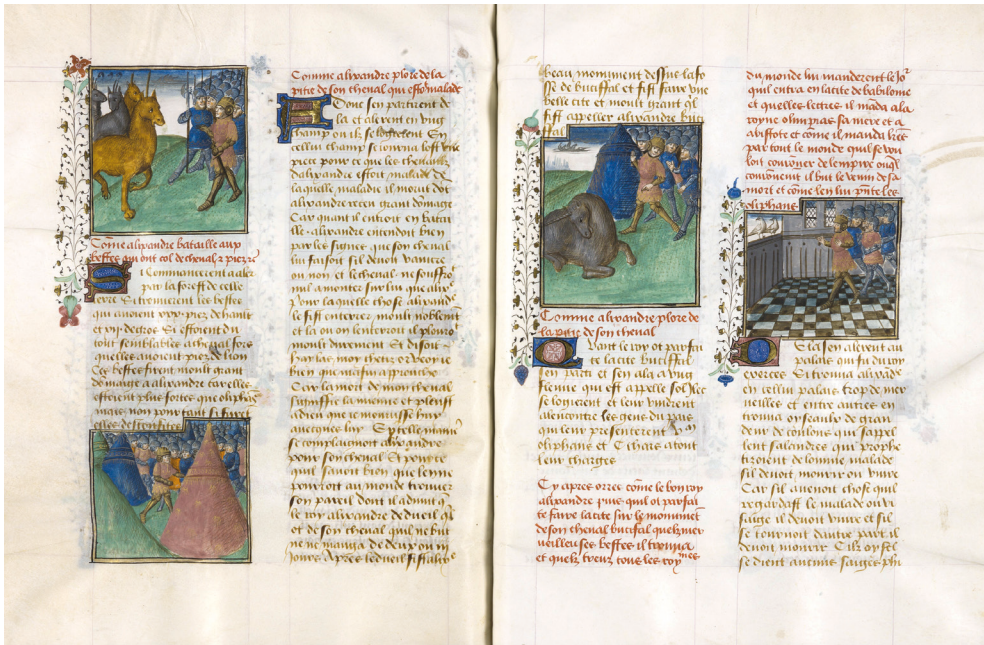 Comme alixandre bataille aux
bestes qui ont col de cheual
Si commancerent a aler
par la forest de celle
Et trouuerent les bestes
qui auoient
Et estoient du
tout semblables a cheual fors
quelles auoient piez de lion
Ces bestes firent moult grant
a alixandre car elles
estoient plus fortes que oliphās
mais non pour tant si furet
elles desconfites
Comme alixandre plore de la
pitie de son cheual qui est malade
Donc sen partirent de
la et alerent en vng
champ ou ilz se
cellui champ seiourna lost vne
piece pour ce que les cheuaulx
dalixandre estoit malade de
laquelle maladie il morut dōt
alixandre receu grant domaige
Car quant il entroit en batail
le alixandre entendoit bien
par les signes que son cheual
lui faisoit sil deuoit vaincre
ou non et le cheual ne souffroit
nul a monter sur lui que alixā
Pour laquelle chose alixandre
le fist enterrer moult noblement
et la ou on lenterroit il ploura
moult durement Et disoit
mon cheual or voy ie
bien que ma fin approuche
Car la mort de mon cheual
signiffie la mienne et pleust
a dieu que ie mourusse huy
auecques luy Et telle manie
se complaignoit alixandre
pour son cheual Et pource
quil sauoit bien que len ne
pourroit au monde trouuer
son pareil dont il aduint q
le roy alixandre de dueil q
ot de son cheual quil ne but
ne ne manga de deux ou iij
iours Apres le dueil fist faire
beau monument dessus la fo
sse de bucifal et fist faire vne
belle cite et moult grant qil
fist appeller alixandre buci
fal
Comme alixandre plore de
la pitie de son cheual
Quant le roy ot parfai
te la cite bucifal
en part et sen ala a vng
fleuue qui est appelle
se logierent et leur vindrent
a lencontre les gens du pais
qui leur presenterent
oliphans et C chars a tout
leur charges
Cy apres orrez cōme le bon roy
alixandre puis quil ot parfai
te faire la cite sur le monumēt
de son cheual bucifal quelz mer
ueilleuses bestes il trouua
et quelz treuz tous les roy mes
du monde lui manderent le Jor
quil entra en la cite de babiloine
et quelles lettres il māda a la
royne olimpias sa mere et a
aristote et cōme il manda
par tout le monde quil se vou
loit couronner de lempire ou ql
couronement il but le venin de sa
mort et cōme len lui pnte les
oliphans
De la sen alerent au
palais qui fu du roy
xerces Et trouua alixādre
en cellui palais trop de mer
ueilles et entre autres en
trouua oyseaulx de gran
deur de coulons qui sappel
lent salendres qui prophe
tizoient de lomme malade
sil deuoit mourir ou viure
Car sil auenoit chose quil
regardast le malade ou vi
saige il deuoit viure et sil
se tournoit dautre part il
deuoit mourir Cilz oyseſ
se dient aucuns saiges phi